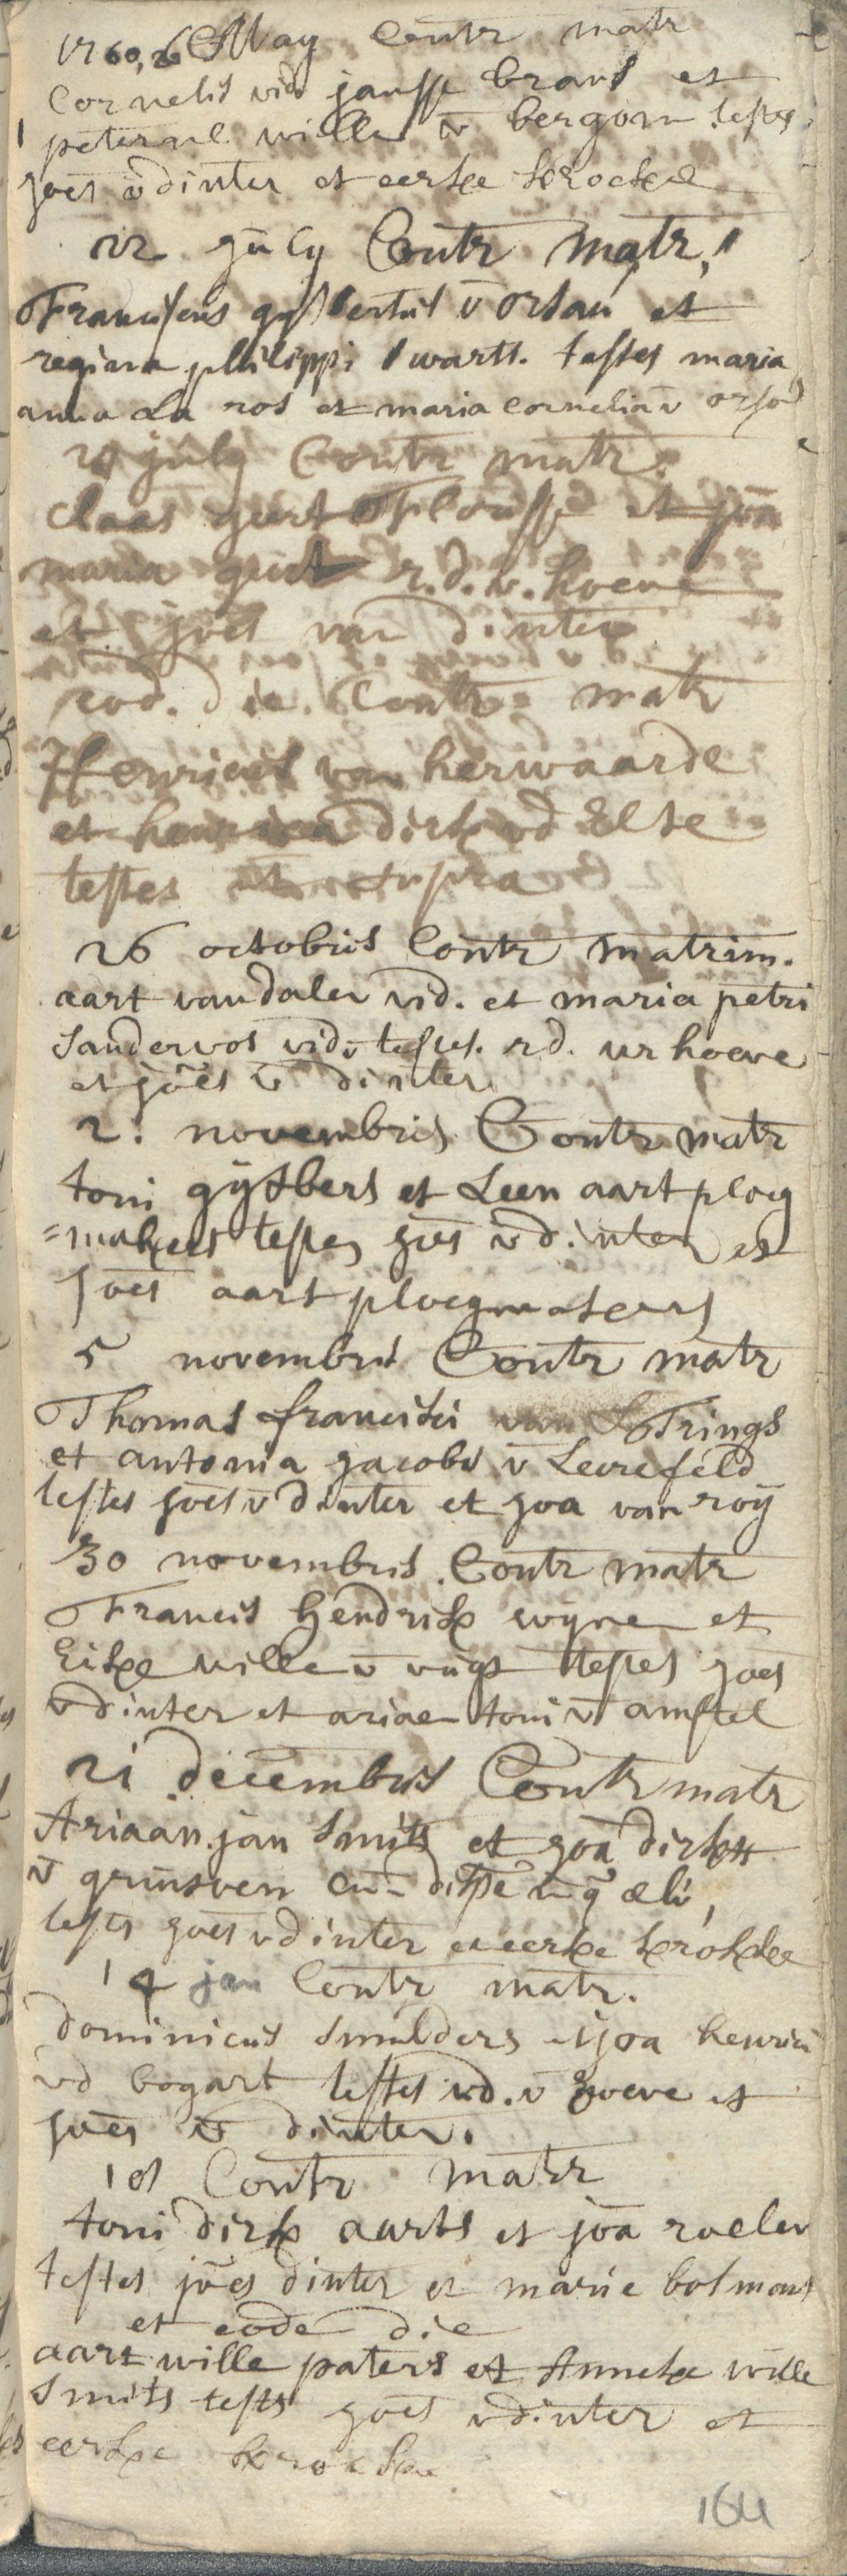 1760, 26 May Contr matr
Cornelis vid jansse brans et
peternel wille v bergom testes
joes v dinter et eerke krocke
22 july Contr matr.
Franciscus gysbertus v orsau et
regina philippi swarts. testes maria
anna La ros et maria cornelia v orsou
july Contr matr.
Claas geert et joa
maria r. d. v. hoeve
et joes van dinter
eod. die Contr matr
Henricus van herwaarde
et henrica dirk vd Else
testes ut supra
26 octobris Contr matrim.
aart van dalen vid. et maria petri
Sandervos vid testes. rd. vr hoeve
et joes v dinter
2. novembris Contr matr
toni gysbers et Leen aart ploeg
=makers testes joes v dinter et
joes aart ploegmakers
5 novembris Contr matr
Thomas francisci van
et antonia jacobi v Leirefeld
testes joes v dinter et joa van roij
30 novembris Contr matr
Francis hendrik wyne et
wille v vugt testes joes
v dinter et ariae toni v amstel
21 decembris Contr matr
Ariaan jan Smits et joa dirks
v grinsven cum
testes joes v dinter et eerke krocke
14 jan Contr matr.
dominicus Smulders et joa henrici
vd bogart testes rd. v hoeve et
joes v dinter.
18 Contr matr
toni dirk aarts et joa roelen
testes joes dinter et marie bosmans
et eode die
aart wille paters et Anneke wille
Smits testes joes v dinter et
eerke krocke
164